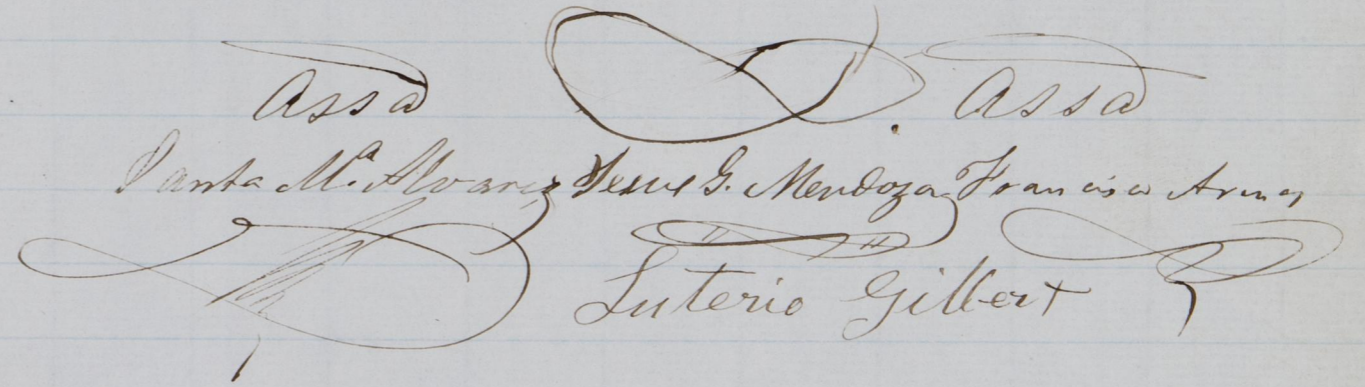 Assa Assa
Santa M.ª Alvarez Jesus G. Mendoza Francisco Armas
Luterio Gilbert